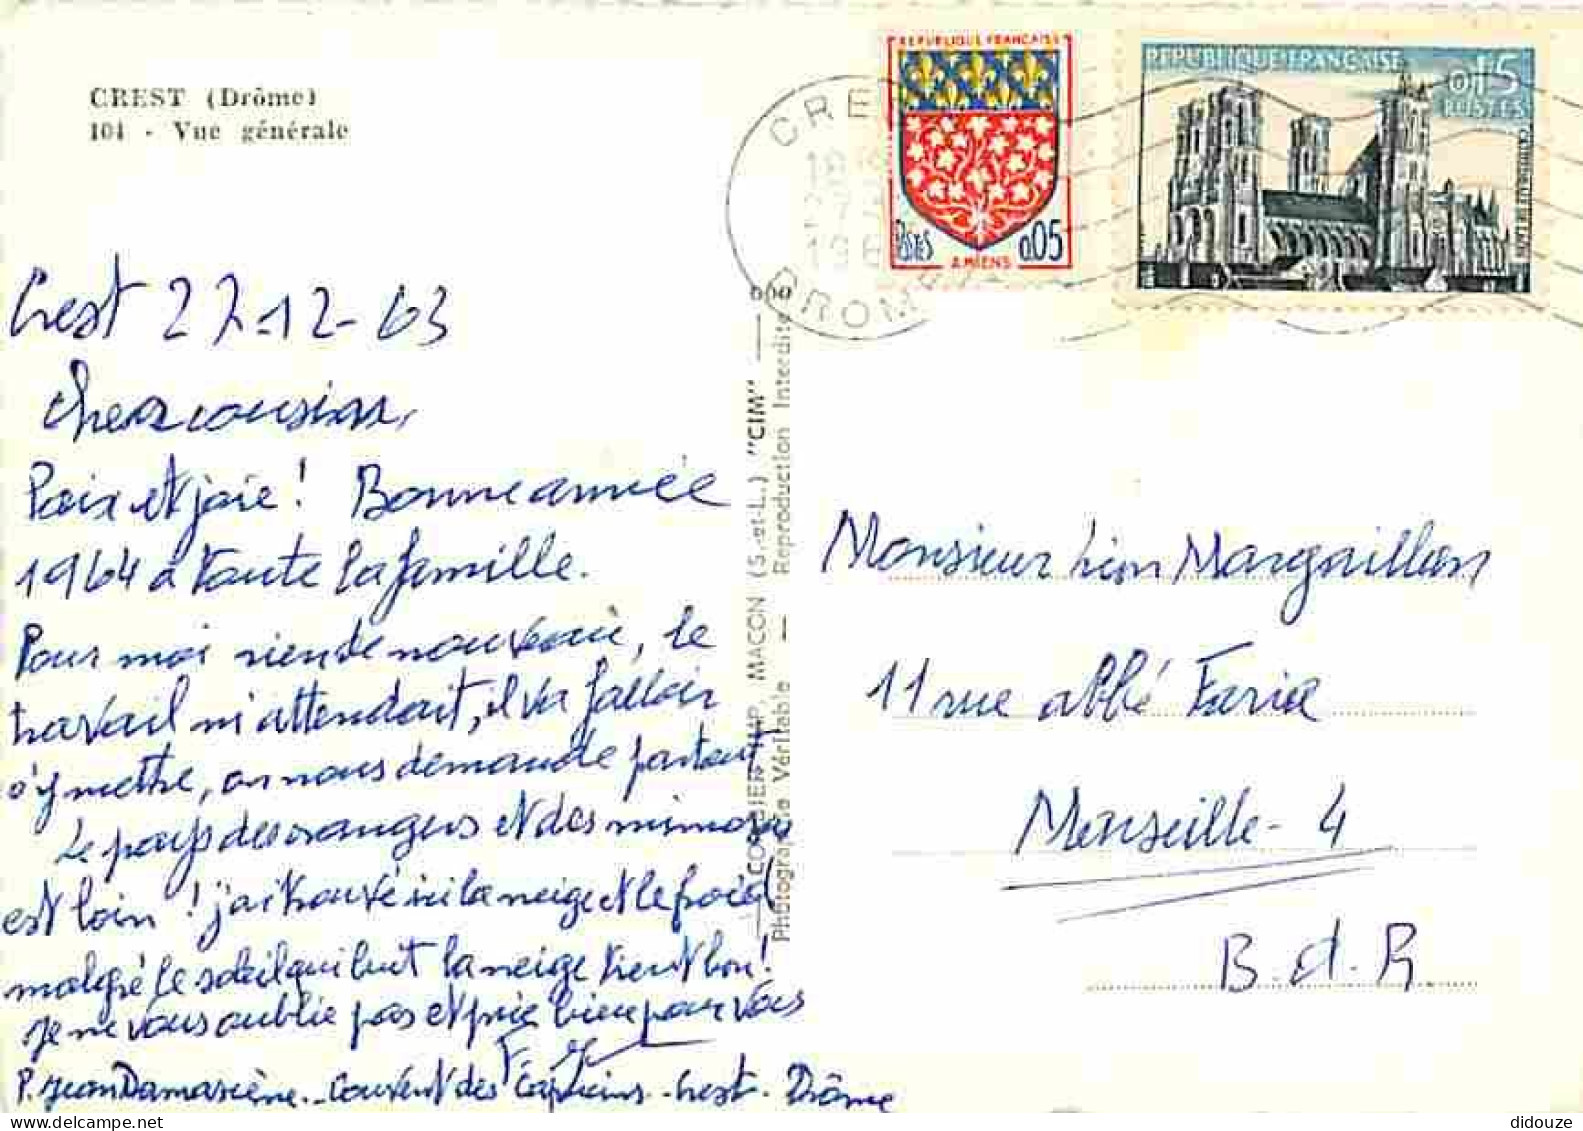 CREST (Drôme)
104 - Vue générale
RÉPUBLIQUE FRANÇAISE
POSTES 0,05
AMIENS
REPUBLIQUE FRANÇAISE
0,15
POSTES
CATHÉDRALE DE LAON
CRE
DROME
Crest 27-12-63
Chers cousins,
Paix et joie ! Bonne année
1964 à toute la famille.
Pour moi rien de nouveau, le
travail m'attendait, il va falloir
s'y mettre, on nous demande partout
Le pays des orangers et des mimosas
est loin ! j'ai trouvé ici la neige et le froid
malgré le soleil qui luit la neige tient bon !
Je ne vous oublie pas et prie bien pour vous
P. Jean Damascène - Couvent des Capucins - Crest - Drôme
COMBIER IMP. MACON (S.-et-L.) "CIM"
Photographie Véritable — Reproduction Interdite
Monsieur Léon Margaillan
11 rue abbé Faria
Marseille - 4
B.d.R
didouze